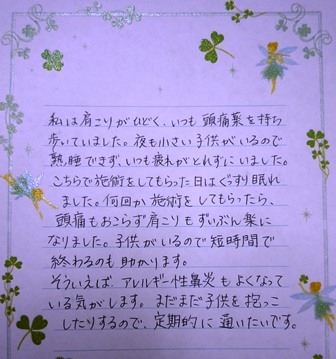 私は肩こりがひどく、いつも頭痛薬を持ち
歩いていました。夜も小さい子供がいるので
熟睡できず、いつも疲れがとれずにいました。
こちらで施術をしてもらった日はぐっすり眠れ
ました。何回か施術をしてもらったら、
頭痛もおこらず肩こりもずいぶん楽に
なりました。子供がいるので短時間で
終わるのも助かります。
そういえば、アレルギー性鼻炎もよくなって
いる気がします。まだまだ子供を抱っこ
したりするので、定期的に通いたいです。